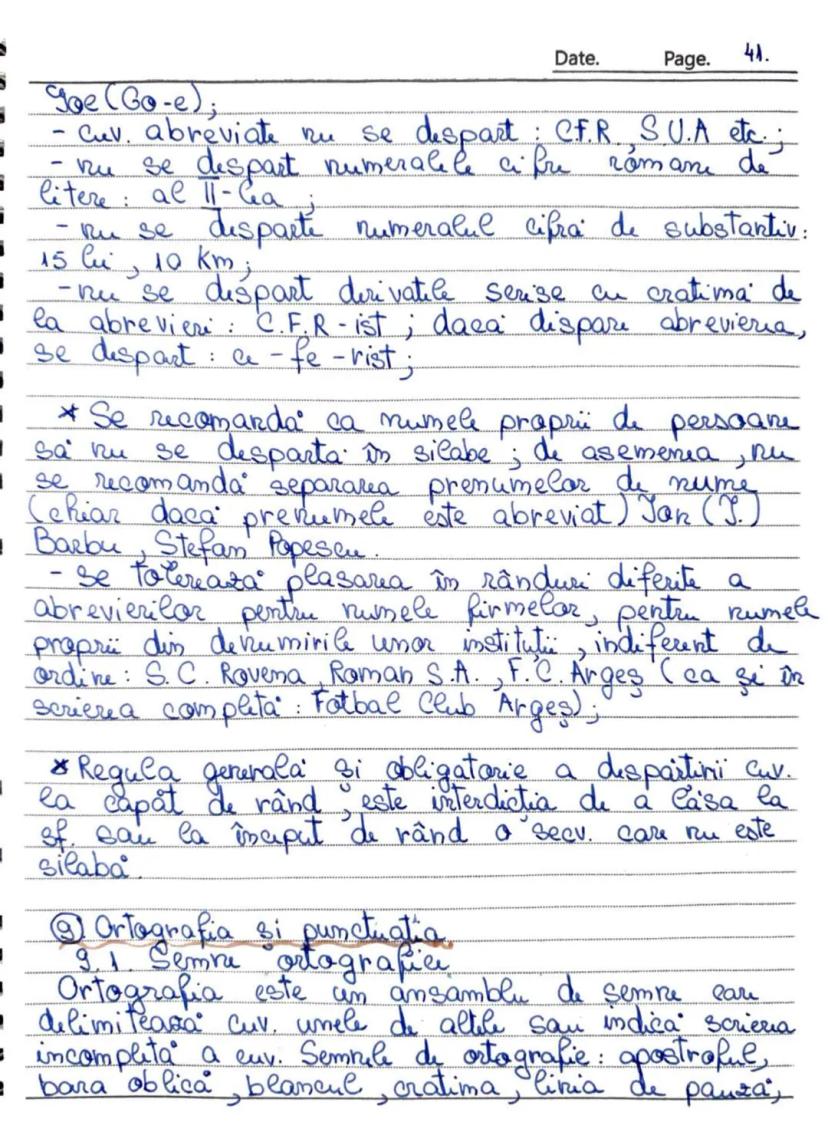 Date. Page. 41.
Joe (Go-e);
- cuv. abreviate nu se despart : C.F.R, S.U.A etc.;
- nu se despart numeralele cifre romane de
litere : al II-lea ;
- nu se desparte numeralul cifră de substantiv :
15 lei , 10 km ;
- nu se despart derivatele scrise cu cratimă de
la abrevieri : C.F.R - ist ; dacă dispare abrevierea,
se despart : ce - fe - rist ;
* Se recomandă ca numele proprii de persoane
să nu se despartă în silabe ; de asemenea , nu
se recomandă separarea prenumelor de nume
(chiar dacă prenumele este abreviat) Ion (I.)
Barbu , Stefan Popescu .
- se tolerează plasarea în rânduri diferite a
abrevierilor pentru numele firmelor, pentru numele
proprii din denumirile unor instituții , indiferent de
ordine : S. C. Rovena , Roman S.A. , F. C. Argeș ( ca și în
scrierea completă : Fotbal Club Argeș ) ;
* Regula generală și obligatorie a despărțirii cuv.
la capăt de rând , este interdicția de a lăsa la
sf. sau la început de rând o secv. care nu este
silabă .
9 Ortografia și punctuația
9.1. Semne ortografice
Ortografia este un ansamblu de semne care
delimitează cuv. unele de altele sau indică scrierea
incompletă a cuv. Semnele de ortografie : apostroful,
bara oblică , blancul , cratima , linia de pauză ,